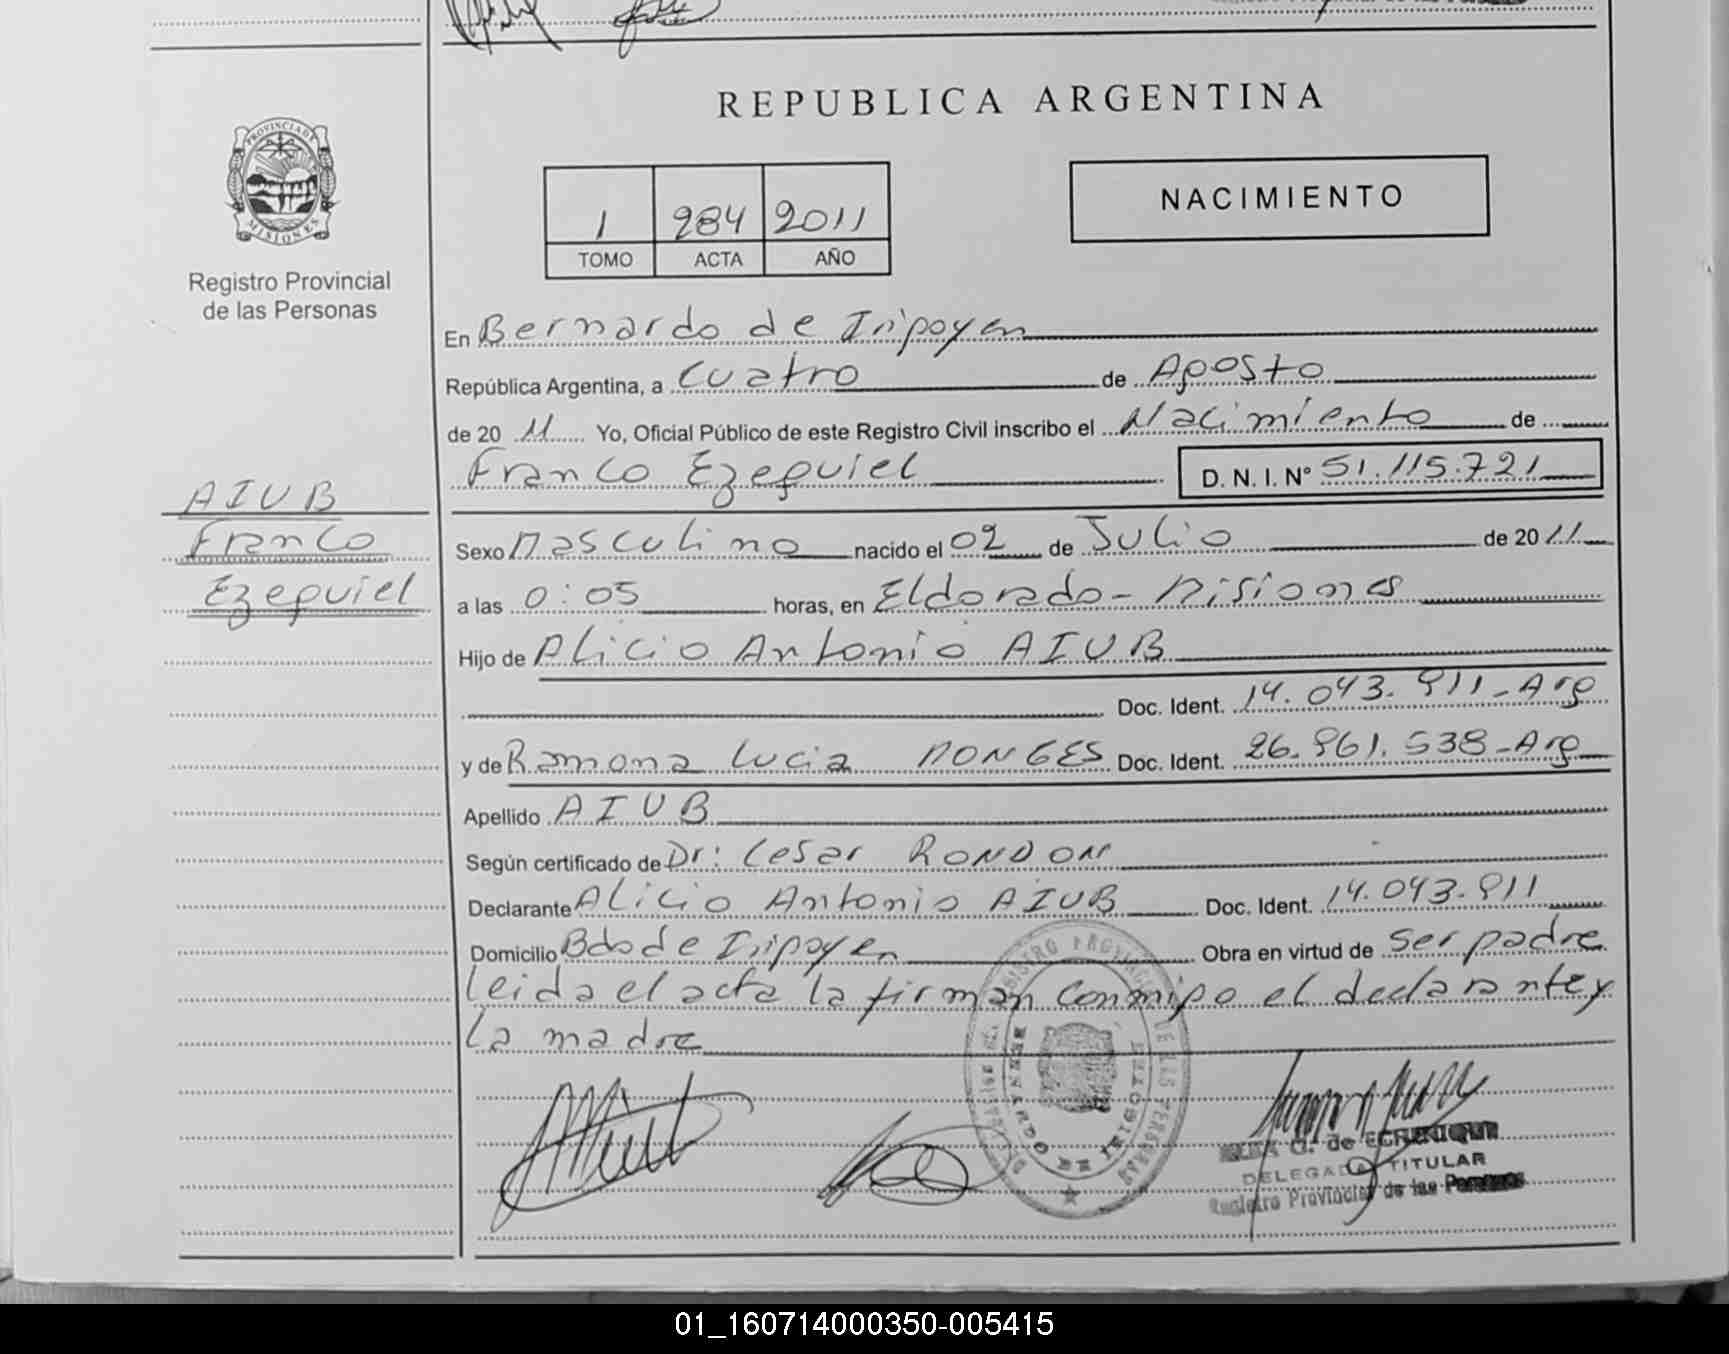 REPUBLICA ARGENTINA
PROVINCIA DE
MISIONES
Registro Provincial
de las Personas
1 284 2011
TOMO ACTA AÑO
NACIMIENTO
En Bernardo de Irigoyen
República Argentina, a Cuatro de Agosto
de 20 11 Yo, Oficial Público de este Registro Civil inscribo el Nacimiento de
Franco Ezequiel D. N. I. Nº 51.115.721
AIUB
Franco
Ezequiel
Sexo Masculino nacido el 02 de Julio de 2011
a las 0:05 horas, en Eldorado - Misiones
Hijo de Alicio Antonio AIUB
Doc. Ident. 14.043.911 - Arg
y de Ramona Lucia MONGES Doc. Ident. 26.961.538 - Arg
Apellido AIUB
Según certificado de Dr: Cesar RONDON
Declarante Alicio Antonio AIUB Doc. Ident. 14.043.911
Domicilio Bdo de Irigoyen Obra en virtud de Ser padre
leida el acta la firman conmigo el declarante y
la madre
G. de
DELEGADA TITULAR
Registro Provincial de las Personas
01_160714000350-005415